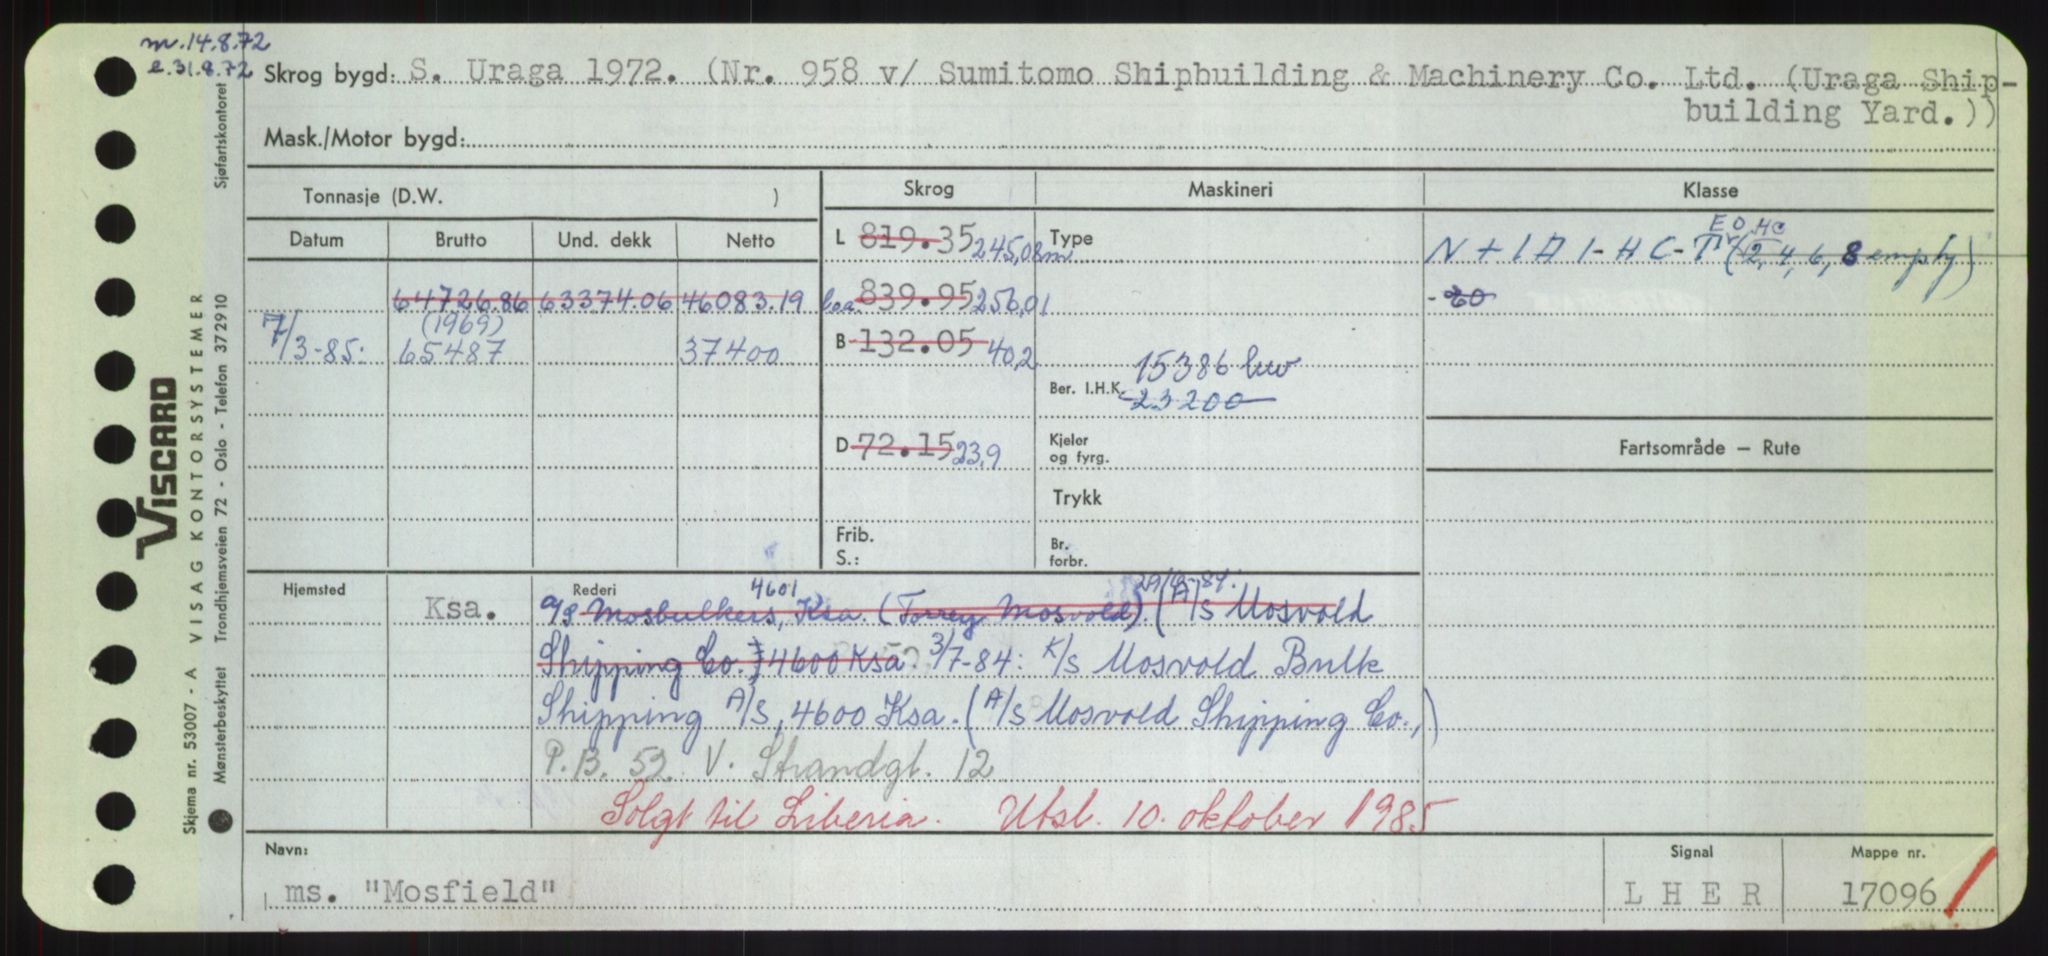 m. 14.8.72
e. 31.8.72
Skrog bygd: S. Uraga 1972. (Nr. 958 v/ Sumitomo Shipbuilding & Machinery Co. Ltd. (Uraga Ship-
building Yard.))
Mask./Motor bygd:
Tonnasje (D.W. )
Skrog Maskineri Klasse
Datum Brutto Und. dekk Netto
L 819.35 245,08m Type
E0 HC
N + 1A1-HC-T (2, 4, 6, 8 empty)
64726.86 63374.06 46083.19
loa. 839.95 256,01
- E0
7/3-85: (1969) 65487 37400
B 132.05 40,2
15386 kw
Ber. I.H.K. 23200
D 72.15 23,9
Kjeler
og fyrg.
Fartsområde — Rute
Trykk
Frib.
S.:
Br.
forbr.
Hjemsted Ksa.
Rederi 4601
A/S Mosbulkers, Ksa. (Torrey Mosvold). (A/S Mosvold
Shipping Co. 4600 Ksa. 3/7-84: K/S Mosvold Bulk
Shipping A/S, 4600 Ksa. (A/S Mosvold Shipping Co.,)
P.B. 53. V. Strandgt. 12
Solgt til Liberia. Utsl. 10. oktober 1985
Navn: Signal Mappe nr.
ms. "Mosfield" L H E R 17096
VISCARD
Skjema nr. 53007 - A VISAG KONTORSYSTEMER
Mønsterbeskyttet Trondhjemsveien 72 - Oslo - Telefon 37 29 10 Sjøfartskontoret